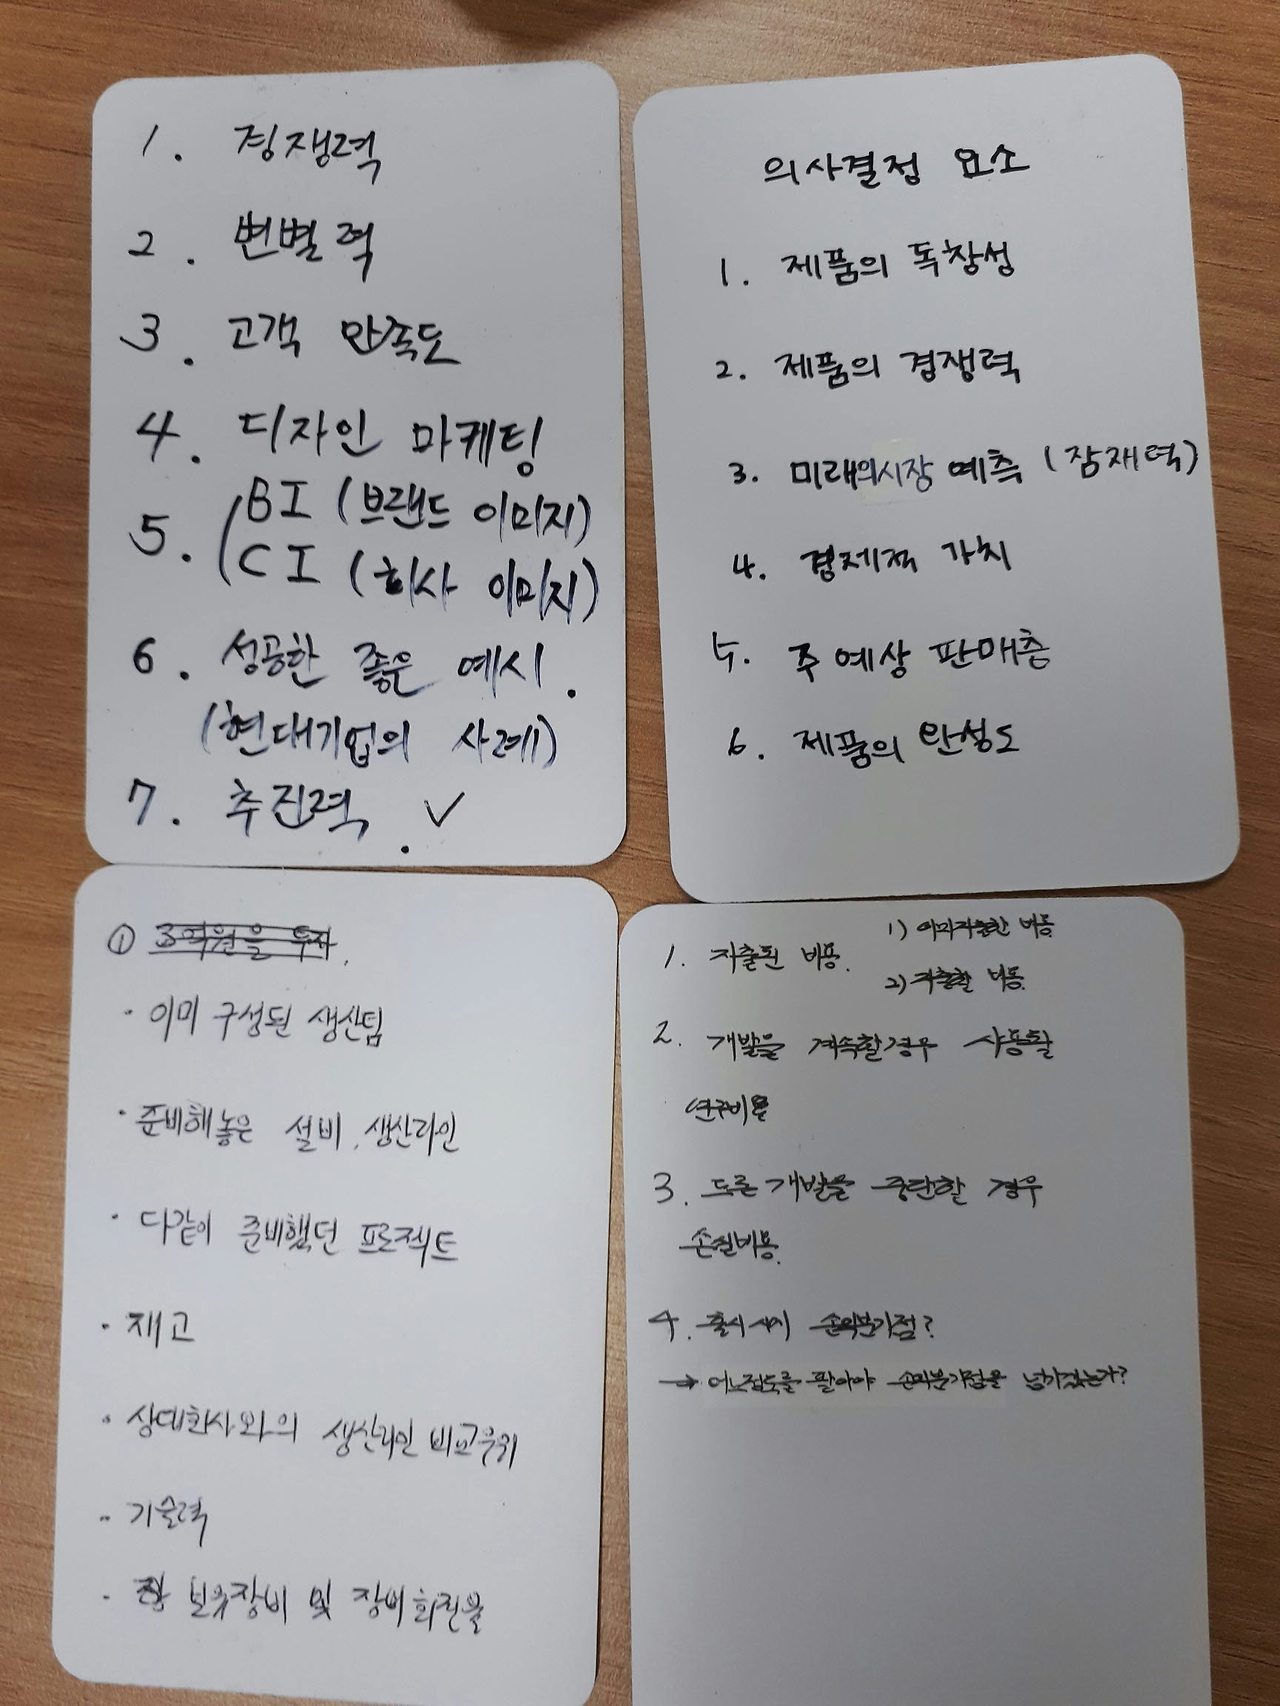 1. 경쟁력
2. 변별력
3. 고객 만족도
4. 디자인 마케팅
5. BI (브랜드 이미지)
CI (회사 이미지)
6. 성공한 좋은 예시.
(현대기업의 사례)
7. 추진력. ✓
의사결정 요소
1. 제품의 독창성
2. 제품의 경쟁력
3. 미래의시장 예측 (잠재력)
4. 경제적 가치
5. 주 예상 판매층
6. 제품의 완성도
① 3억원을 투자.
· 이미 구성된 생산팀
· 준비해놓은 설비, 생산라인
· 다같이 준비했던 프로젝트
· 재고
· 상대회사와의 생산라인 비교우위
· 기술력
· 보유장비 및 장비회전율
1. 지출된 비용.
1) 이미지출한 비용
2) 지출할 비용.
2. 개발을 계속할경우 사용할
연구비용
3. 드론 개발을 중단할 경우
손실비용.
4. 출시 시 손익분기점?
→ 어느정도를 팔아야 손익분기점을 넘기겠는가?